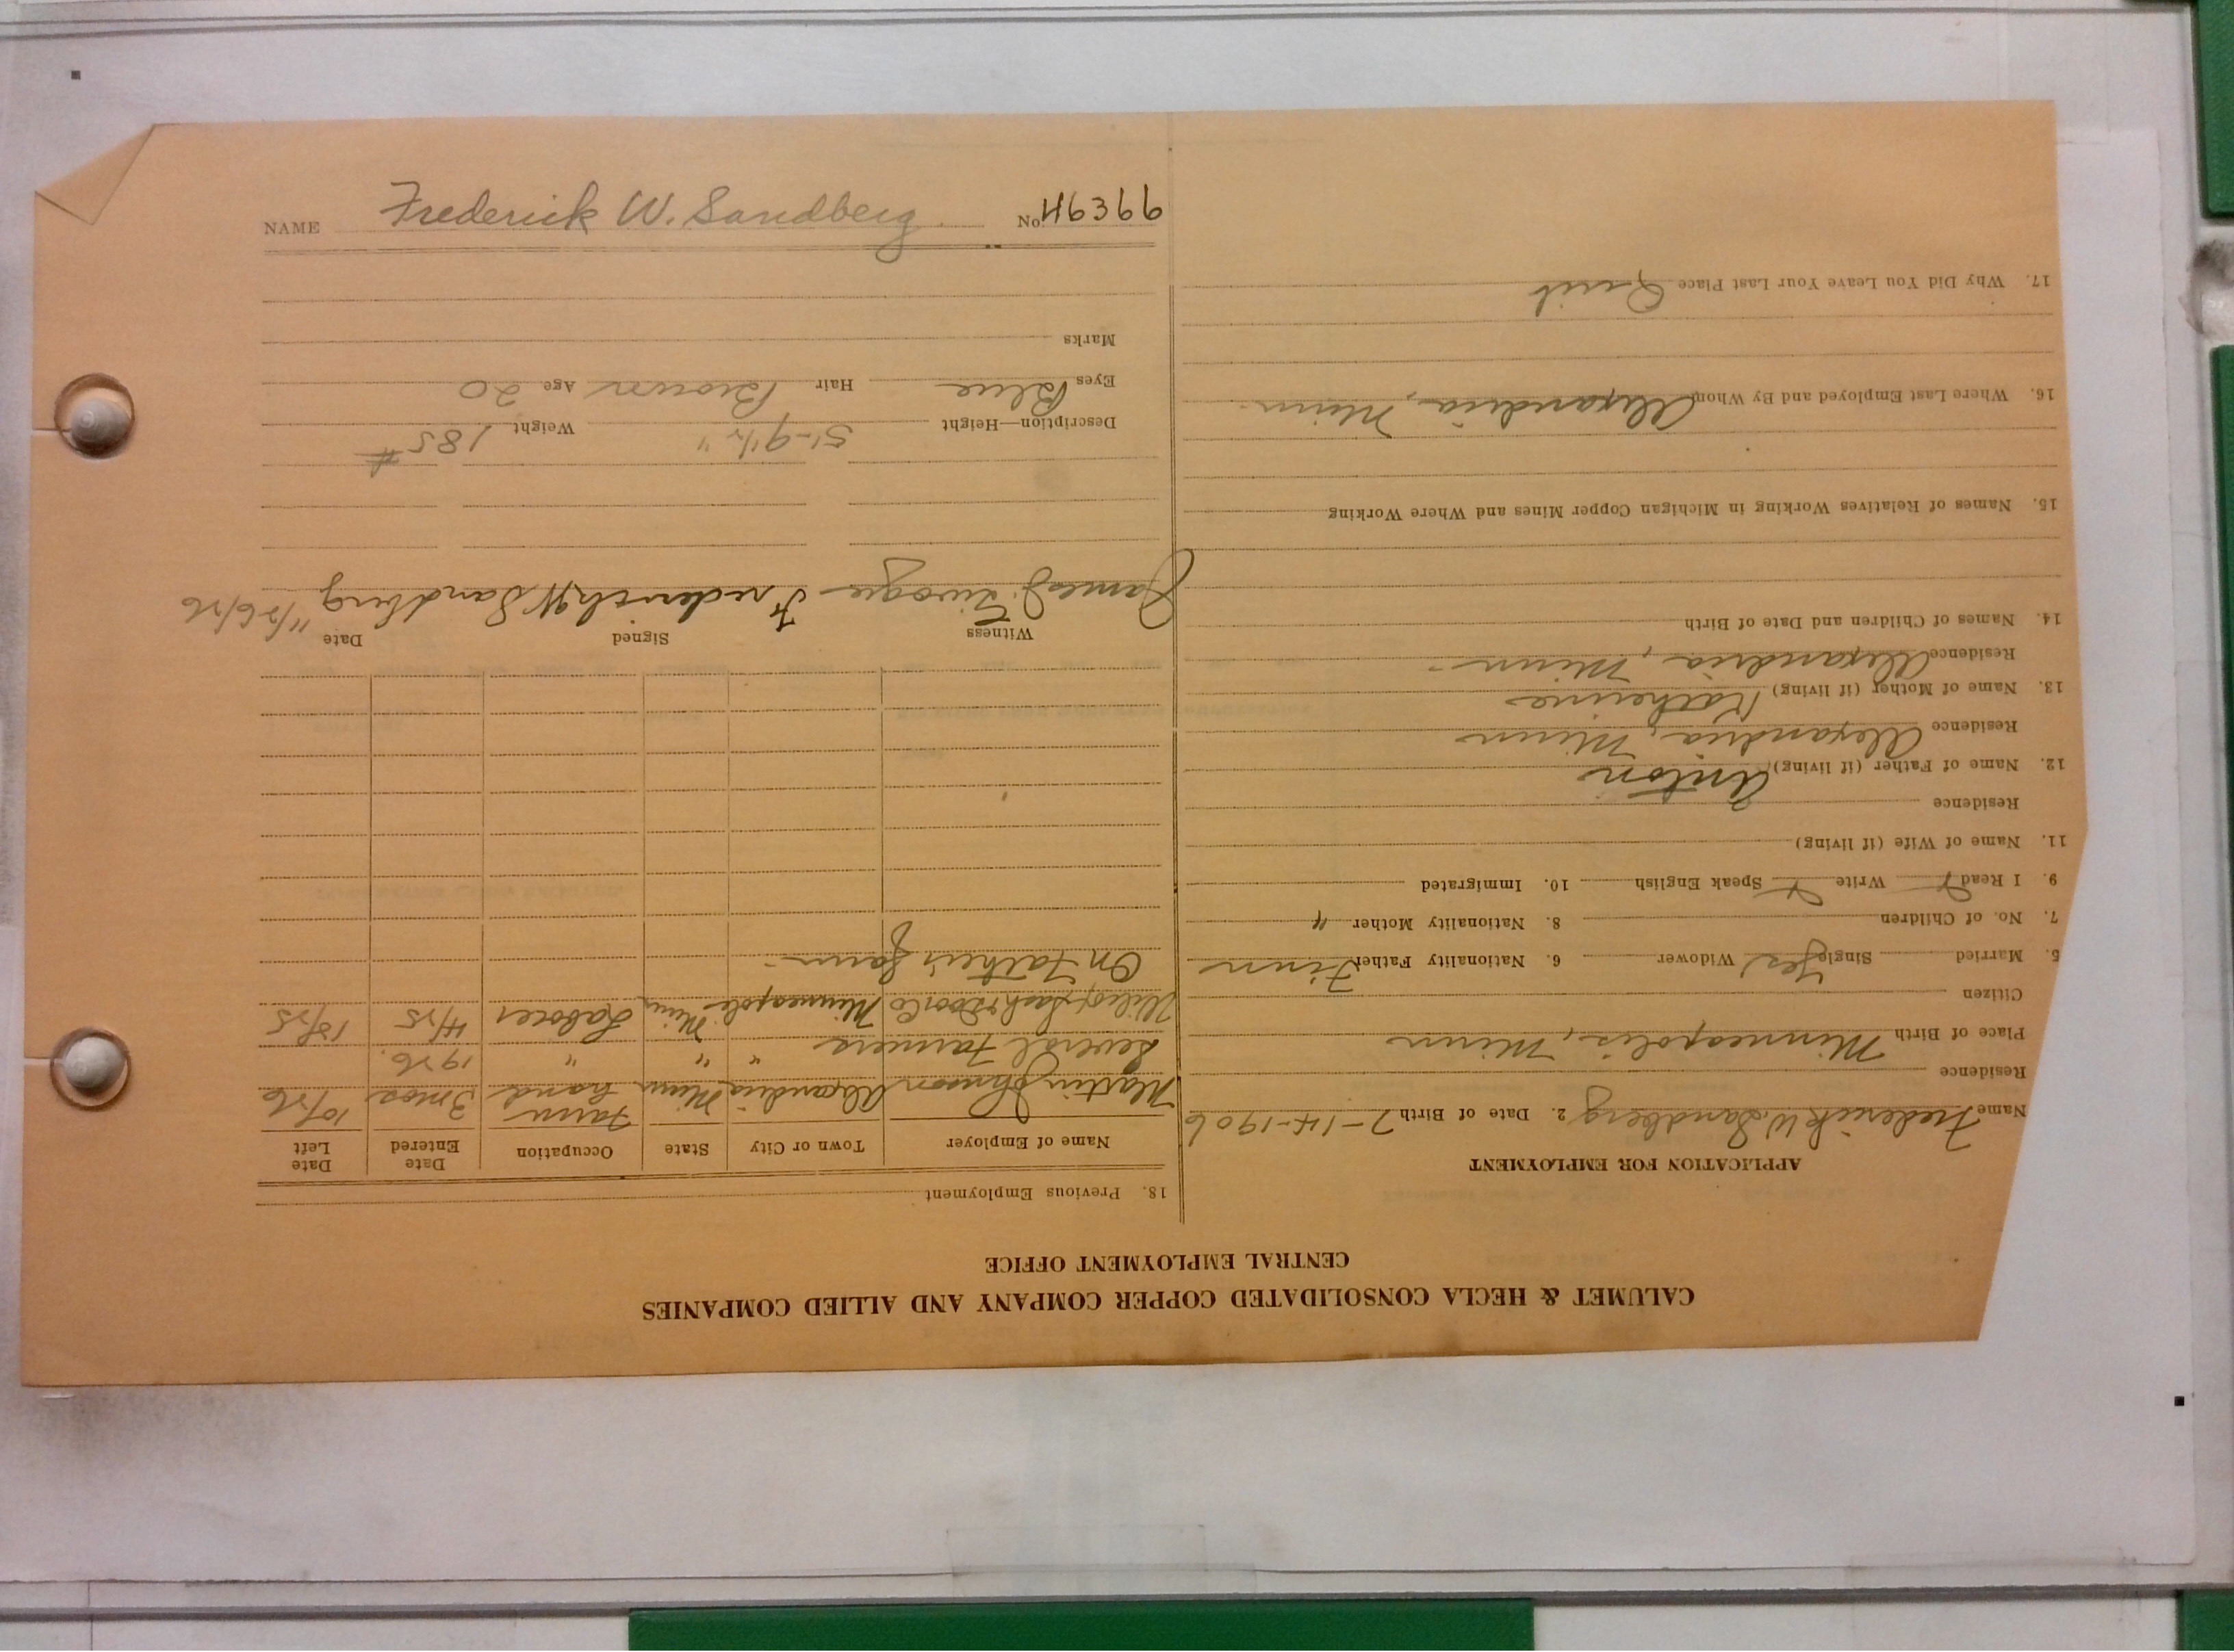 CALUMET & HECLA CONSOLIDATED COPPER COMPANY AND ALLIED COMPANIES
CENTRAL EMPLOYMENT OFFICE
APPLICATION FOR EMPLOYMENT
Name Frederick W. Sandberg 2. Date of Birth 7-14-1906
Residence
Place of Birth Minneapolis, Minn
Citizen
5. Married Single Yes Widower 6. Nationality Father Finn
7. No. of Children 8. Nationality Mother "
9. I Read Write Speak English 10. Immigrated
11. Name of Wife (if living)
Residence
12. Name of Father (if living) Anton
Residence Alexandria, Minn
13. Name of Mother (if living) Katherine
Residence Alexandria, Minn.
14. Names of Children and Date of Birth
15. Names of Relatives Working in Michigan Copper Mines and Where Working
16. Where Last Employed and By Whom Alexandria, Minn.
17. Why Did You Leave Your Last Place Quit
18. Previous Employment
Name of Employer Town or City State Occupation Date Entered Date Left
Martin Johnson Alexandria Minn Farm hand 3 mos 10/26
Several Farmers " " " 1926.
Sash & Door Co Minneapolis Minn Laborer 4/25 12/25
On Father's farm.
Witness Signed Date
James Frederick W Sandberg 11/26/26
Description—Height 5'-9 1/2" Weight 185#
Eyes Blue Hair Brown Age 20
Marks
NAME Frederick W. Sandberg No. 46366